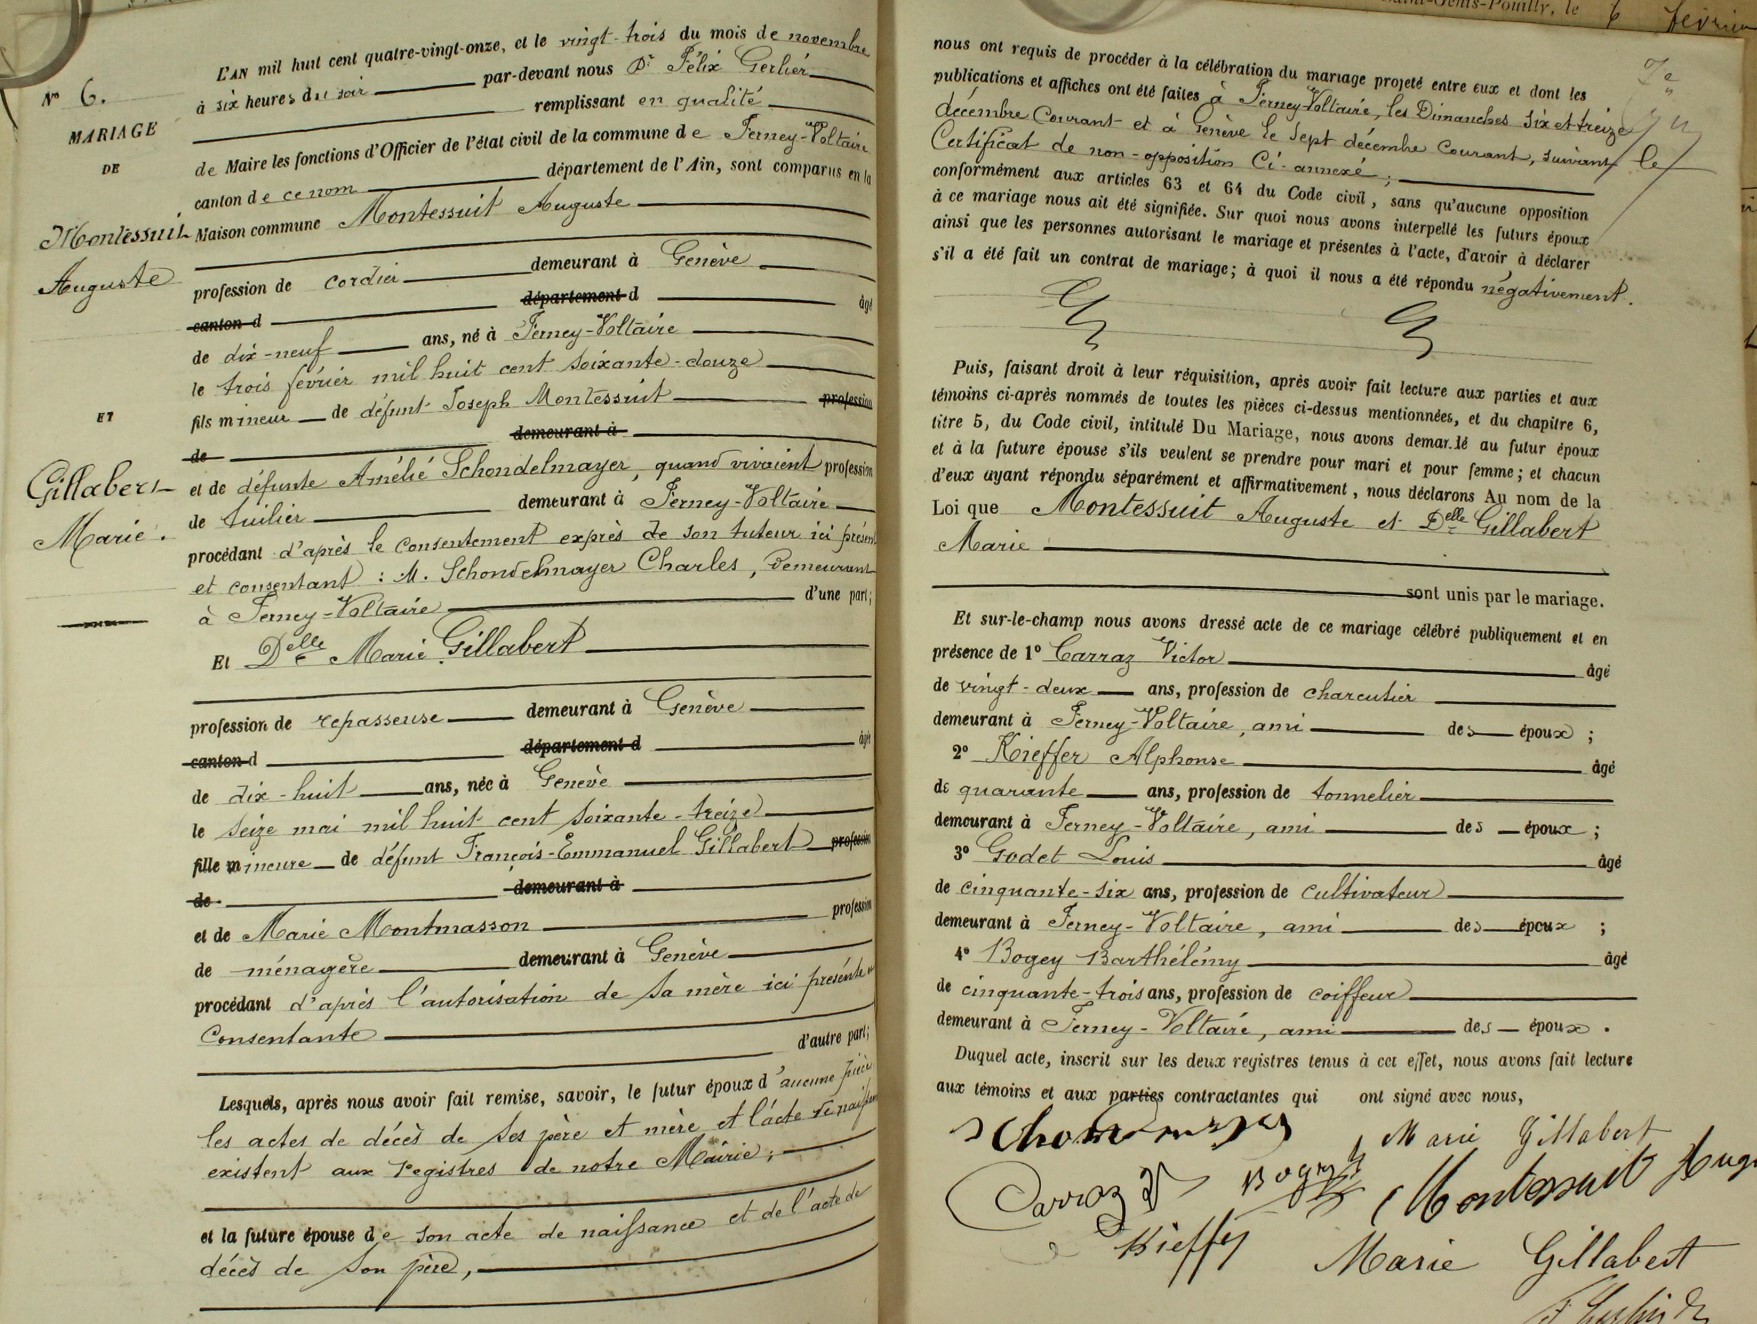 Nº 6.
MARIAGE
DE
Montessuit
Auguste
ET
Gillabert
Marie.
L'AN mil huit cent quatre-vingt-onze, et le vingt-trois du mois de novembre
à six heures du soir par-devant nous Dr Félix Gerlier
remplissant en qualité
de Maire les fonctions d'Officier de l'état civil de la commune de Ferney-Voltaire
canton de ce nom département de l'Ain, sont comparus en la
Maison commune Montessuit Auguste
profession de cordier demeurant à Genève
canton d département d âgé
de dix-neuf ans, né à Ferney-Voltaire
le trois février mil huit cent soixante-douze
fils mineur de défunt Joseph Montessuit profession
de demeurant à
et de défunte Amélie Schondelmayer, quand vivaient profession
de tuilier demeurant à Ferney-Voltaire
procédant d'après le consentement exprès de son tuteur ici présent
et consentant : M. Schondelmayer Charles, demeurant
à Ferney-Voltaire d'une part;
Et Delle Marie Gillabert
profession de repasseuse demeurant à Genève
canton d département d âgée
de dix-huit ans, née à Genève
le seize mai mil huit cent soixante-treize
fille mineure de défunt François-Emmanuel Gillabert profession
de demeurant à
et de Marie Montmasson profession
de ménagère demeurant à Genève
procédant d'après l'autorisation de sa mère ici présente et
consentante d'autre part;
Lesquels, après nous avoir fait remise, savoir, le futur époux d'aucune pièce
les actes de décès de ses père et mère et l'acte de naissance
existent aux registres de notre Mairie;
et la future épouse de son acte de naissance et de l'acte de
décès de son père,
Saint-Genis-Pouilly, le 6 février
nous ont requis de procéder à la célébration du mariage projeté entre eux et dont les
publications et affiches ont été faites à Ferney-Voltaire, les Dimanches six et treize
décembre courant et à Genève le sept décembre courant, suivant le
Certificat de non-opposition ci-annexé;
conformément aux articles 63 et 64 du Code civil, sans qu'aucune opposition
à ce mariage nous ait été signifiée. Sur quoi nous avons interpellé les futurs époux
ainsi que les personnes autorisant le mariage et présentes à l'acte, d'avoir à déclarer
s'il a été fait un contrat de mariage; à quoi il nous a été répondu négativement.
Puis, faisant droit à leur réquisition, après avoir fait lecture aux parties et aux
témoins ci-après nommés de toutes les pièces ci-dessus mentionnées, et du chapitre 6,
titre 5, du Code civil, intitulé Du Mariage, nous avons demandé au futur époux
et à la future épouse s'ils veulent se prendre pour mari et pour femme; et chacun
d'eux ayant répondu séparément et affirmativement, nous déclarons Au nom de la
Loi que Montessuit Auguste et Delle Gillabert
Marie
sont unis par le mariage.
Et sur-le-champ nous avons dressé acte de ce mariage célébré publiquement et en
présence de 1º Carraz Victor âgé
de vingt-deux ans, profession de charcutier
demeurant à Ferney-Voltaire, ami des époux ;
2º Kieffer Alphonse âgé
de quarante ans, profession de tonnelier
demeurant à Ferney-Voltaire, ami des époux ;
3º Godet Louis âgé
de cinquante-six ans, profession de cultivateur
demeurant à Ferney-Voltaire, ami des époux ;
4º Bogey Barthélémy âgé
de cinquante-trois ans, profession de coiffeur
demeurant à Ferney-Voltaire, ami des époux.
Duquel acte, inscrit sur les deux registres tenus à cet effet, nous avons fait lecture
aux témoins et aux parties contractantes qui ont signé avec nous,
Marie Gillabert
Carraz V Bogey Montessuit Aug
Kieffer
Marie Gillabert